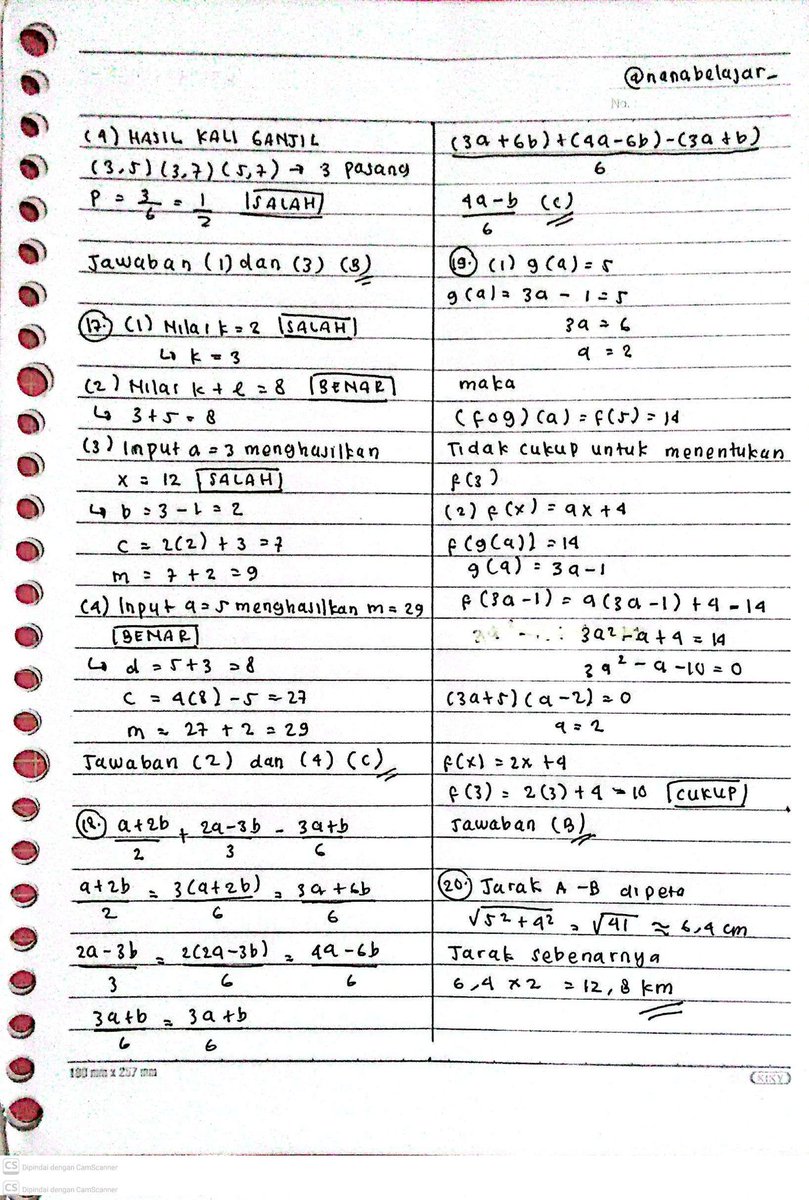 @nanabelajar_
No.
(4) HASIL KALI GANJIL
(3,5) (3,7) (5,7) → 3 pasang
P = 3/6 = 1/2 SALAH
Jawaban (1) dan (3) (B)
17. (1) Nilai k = 2 SALAH
↳ k = 3
(2) Nilai k + l = 8 BENAR
↳ 3+5 = 8
(3) Input a = 3 menghasilkan
x = 12 SALAH
↳ b = 3 - 1 = 2
c = 2(2) + 3 = 7
m = 7 + 2 = 9
(4) Input a = 5 menghasilkan m = 29
BENAR
↳ d = 5+3 = 8
c = 4(8) - 5 = 27
m = 27 + 2 = 29
Jawaban (2) dan (4) (C)
18. a+2b/2 + 2a-3b/3 - 3a+b/6
a+2b/2 = 3(a+2b)/6 = 3a+6b/6
2a-3b/3 = 2(2a-3b)/6 = 4a-6b/6
3a+b/6 = 3a+b/6
(3a+6b)+(4a-6b)-(3a+b)/6
4a-b/6 (C)
19. (1) g(a) = 5
g(a) = 3a - 1 = 5
3a = 6
a = 2
maka
(fog)(a) = f(5) = 14
Tidak cukup untuk menentukan
f(3)
(2) f(x) = ax + 4
f(g(a)) = 14
g(a) = 3a-1
f(3a-1) = a(3a-1) + 4 = 14
3a² - a + 4 = 14
3a² - a - 10 = 0
(3a+5)(a-2) = 0
a = 2
f(x) = 2x + 4
f(3) = 2(3) + 4 = 10 CUKUP
Jawaban (B)
20. Jarak A-B di peta
√5²+4² = √41 ≈ 6,4 cm
Jarak sebenarnya
6,4 × 2 = 12,8 km
180 mm x 257 mm
KIKY
CS Dipindai dengan CamScanner
CS Dipindai dengan CamScanner